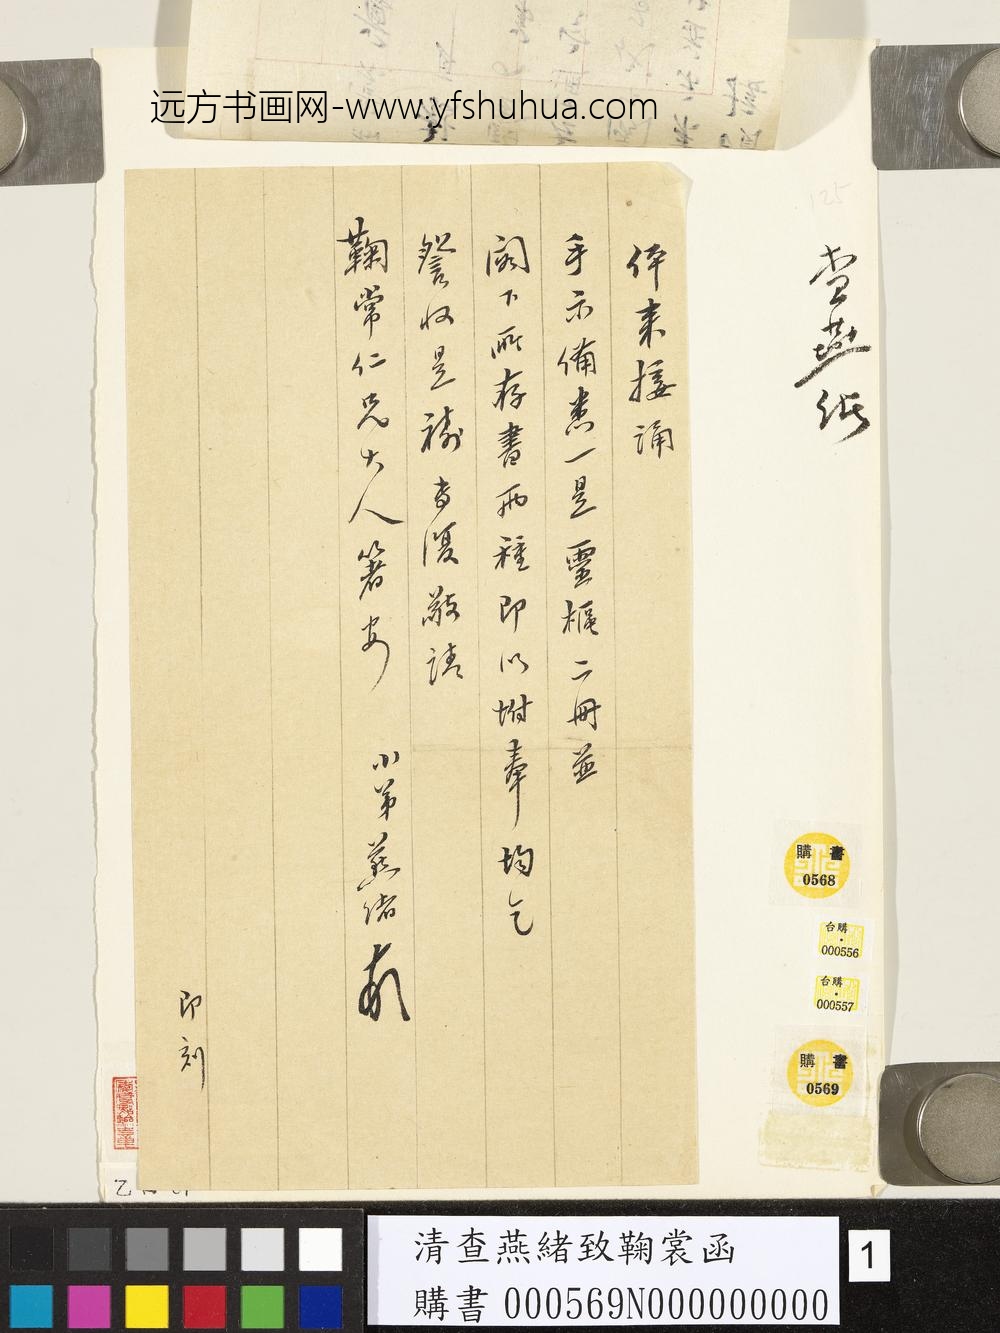 远方书画网-www.yfshuhua.com
125
查燕緒
伻来接誦
手示備悉一是靈樞二冊並
閣下所存書兩種即以坿奉均乞
詧收是禱专復敬請
鞠常仁兄大人箸安
小弟燕緒頓
即刻
購書
0568
台購
000556
台購
000557
購書
0569
清查燕緒致鞠裳函
購書000569N000000000
1